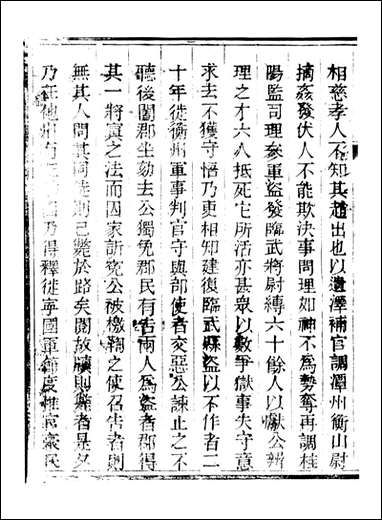 相慈孝人不知其趙出也以遺澤補官調潭州衡山尉
摘姦發伏人不能欺決事問理如神不為勢奪再調桂
陽監司理參軍盜發臨武將尉縛六十餘人以獻公辨
理之才六人抵死它所活亦甚眾以數爭獄事失守意
求去不獲守悟乃更相知建復臨武縣盜以不作者二
十年徙衡州軍事判官守與部使者交惡公諫止之不
聽後闔郡坐劾去公獨免郡民有告兩人為盜者郡得
其一將寘之法而囚家訴寃公被檄鞫之使召告者則
無其人問其同徒則已斃於路矣閱故牘則斃者是夕
乃在他州有 乃得釋徙寧國軍節度推官豪民